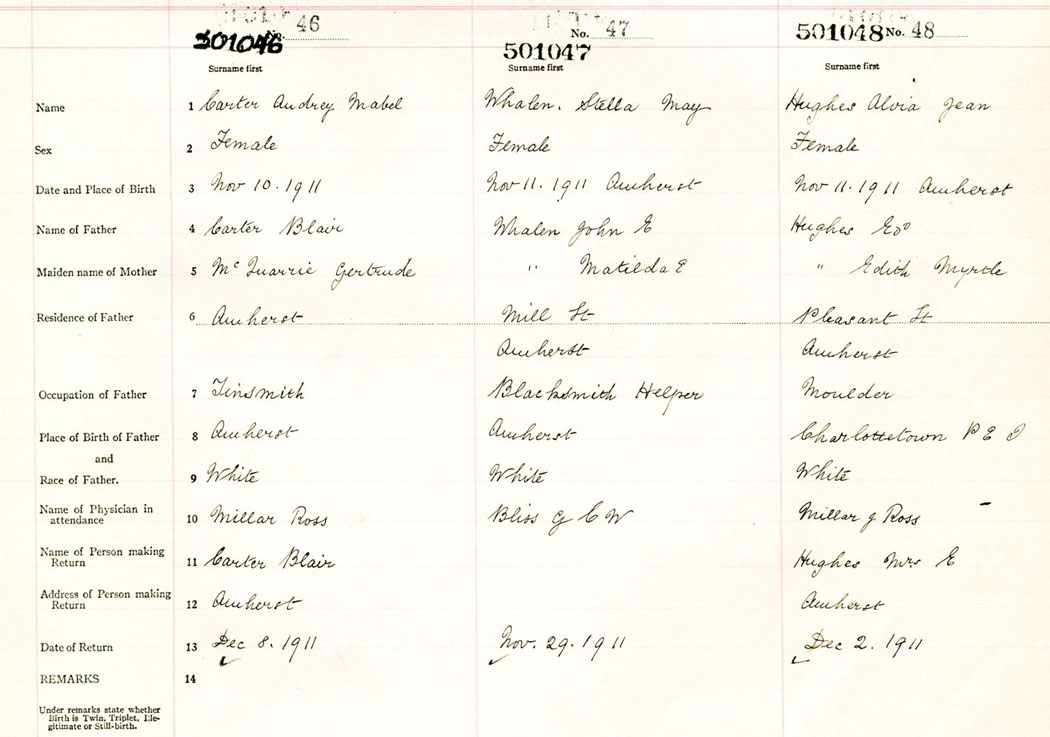 No. 46 No. 47 No. 48
501046 501047 501048
Surname first Surname first Surname first
Name 1 Carter Audrey Mabel Whalen. Stella May Hughes Alvia Jean
Sex 2 Female Female Female
Date and Place of Birth 3 Nov 10. 1911 Nov 11. 1911 Amherst Nov 11. 1911 Amherst
Name of Father 4 Carter Blair Whalen John E Hughes Edd
Maiden name of Mother 5 Mc Quarrie Gertrude " Matilda E " Edith Myrtle
Residence of Father 6 Amherst Mill St Pleasant St
Amherst Amherst
Occupation of Father 7 Tinsmith Blacksmith Helper Moulder
Place of Birth of Father 8 Amherst Amherst Charlottetown P E I
and
Race of Father. 9 White White White
Name of Physician in
attendance 10 Millar Ross Bliss G C W Millar & Ross
Name of Person making
Return 11 Carter Blair Hughes Mrs E
Address of Person making
Return 12 Amherst Amherst
Date of Return 13 Dec 8. 1911 Nov. 29. 1911 Dec 2. 1911
REMARKS 14
Under remarks state whether
Birth is Twin, Triplet, Ille-
gitimate or Still-birth.